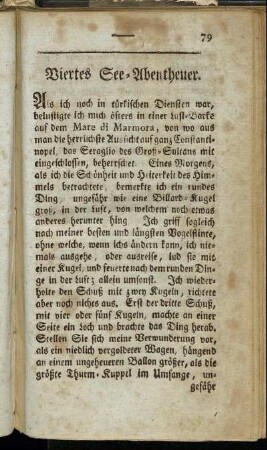 79
Viertes See-Abentheuer.
Als ich noch in türkischen Diensten war,
belustigte ich mich öfters in einer Lust-Barke
auf dem Mare di Marmora, von wo aus
man die herrlichste Aussicht auf ganz Constanti-
nopel, das Seraglio des Groß-Sultans mit
eingeschlossen, beherrschet. Eines Morgens,
als ich die Schönheit und Heiterkeit des Him-
mels betrachtete, bemerkte ich ein rundes
Ding, ungefähr wie eine Billard-Kugel
groß, in der Luft, von welchem noch etwas
anderes herunter hing Ich griff sogleich
nach meiner besten und längsten Vogelflinte,
ohne welche, wenn ichs ändern kann, ich nie-
mals ausgehe, oder ausreise, lud sie mit
einer Kugel, und feuerte nach dem runden Din-
ge in der Luft; allein umsonst. Ich wieder-
holte den Schuß mit zwey Kugeln, richtete
aber noch nichts aus. Erst der dritte Schuß,
mit vier oder fünf Kugeln, machte an einer
Seite ein Loch und brachte das Ding herab.
Stellen Sie sich meine Verwunderung vor,
als ein niedlich vergoldeter Wagen, hängend
an einem ungeheueren Ballon größer, als die
größte Thurm-Kuppel im Umfange, un-
gefähr